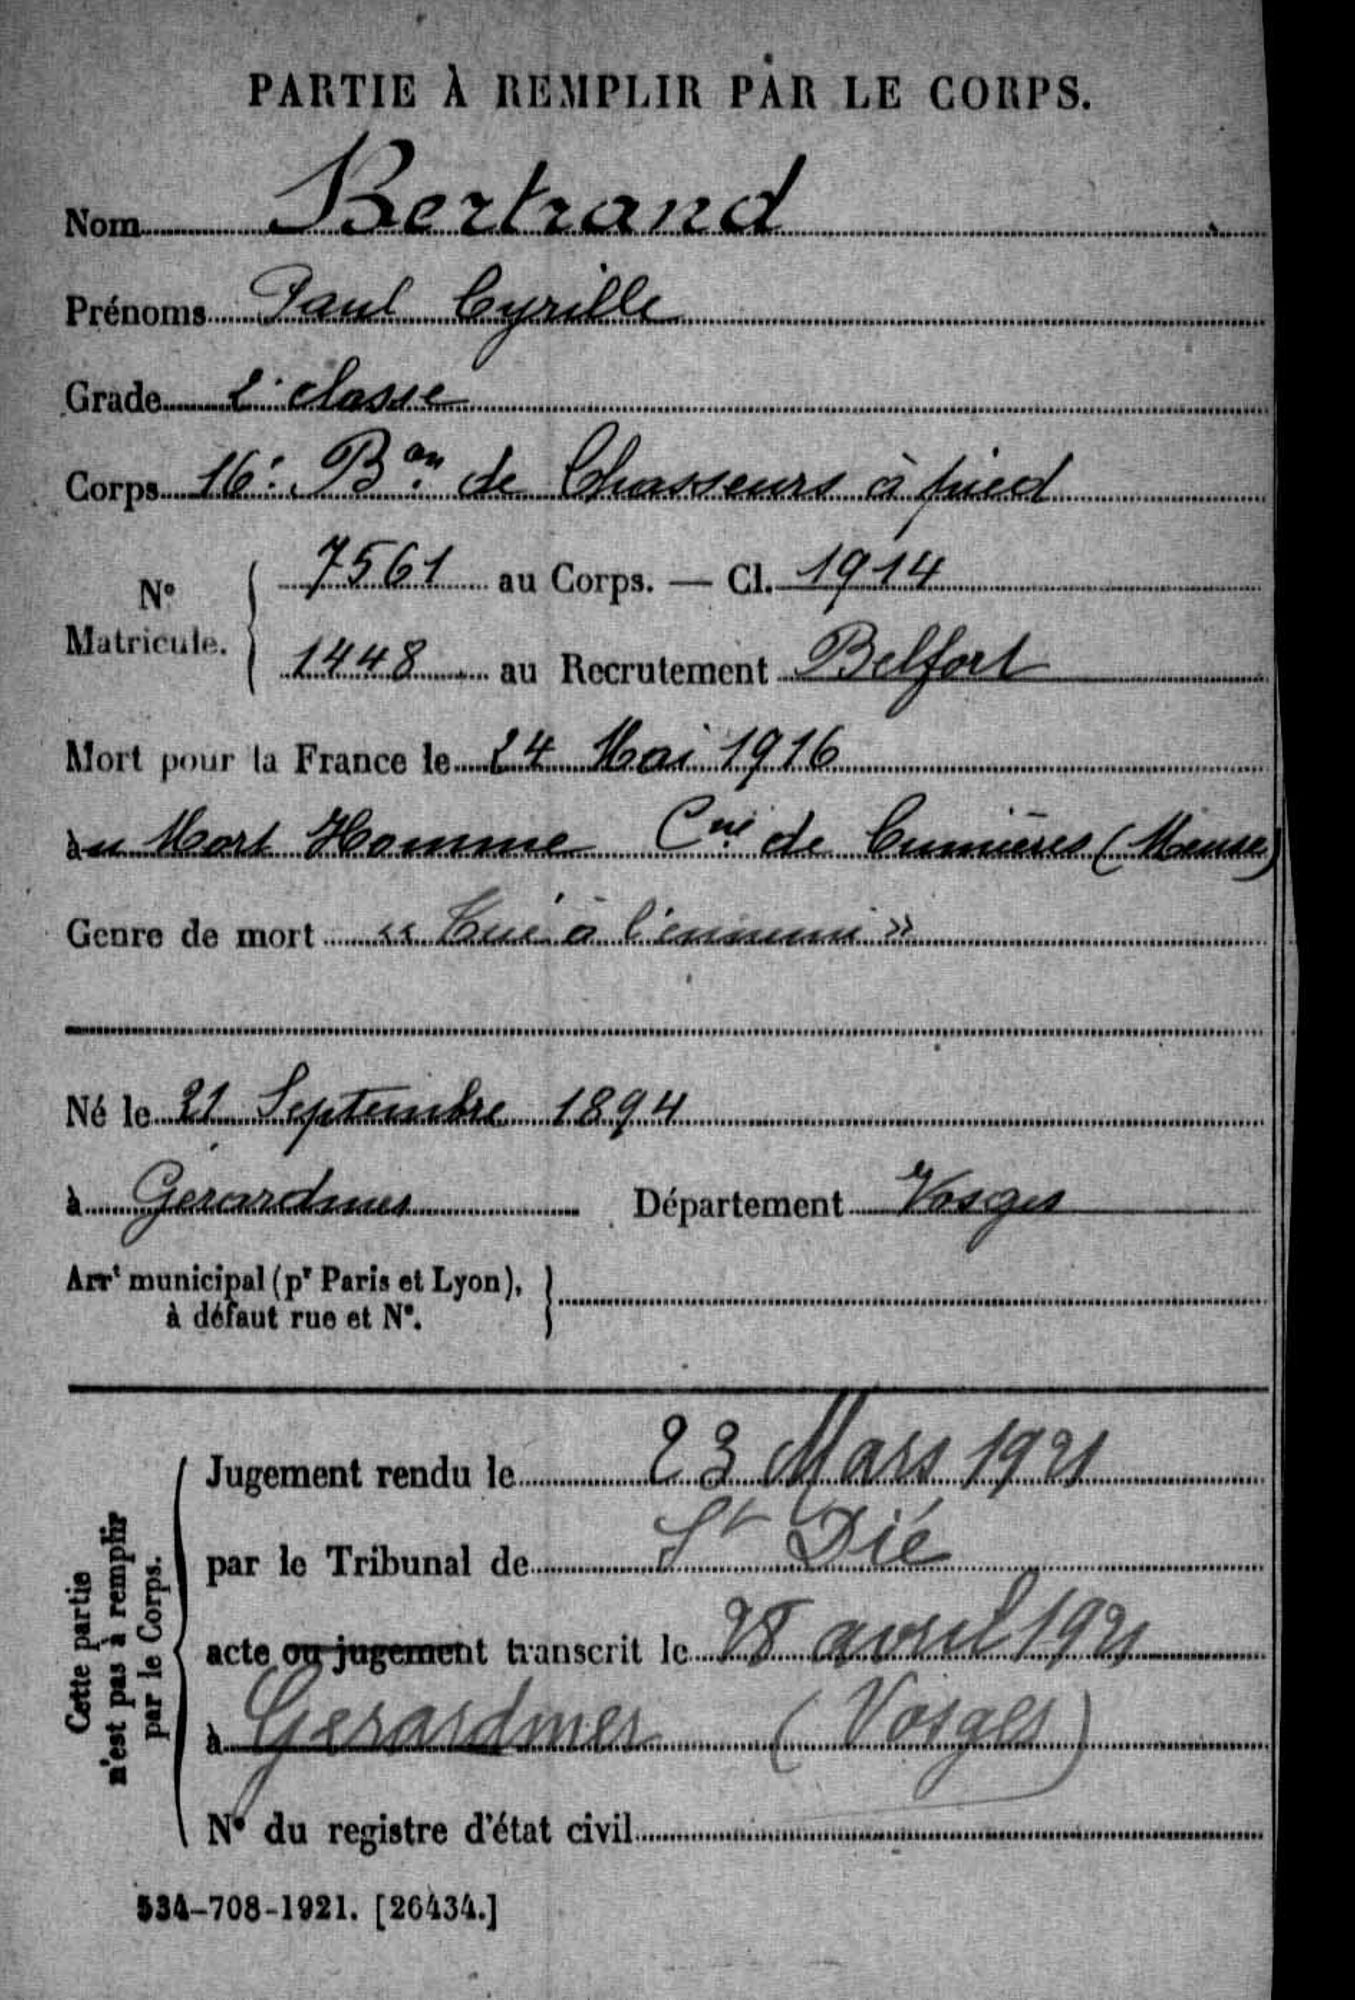 PARTIE À REMPLIR PAR LE CORPS.
Nom Bertrand
Prénoms Paul Cyrille
Grade 2e classe
Corps 16e Bon de Chasseurs à pied
No Matricule. 7561 au Corps. — Cl. 1914
1448 au Recrutement Belfort
Mort pour la France le 24 Mai 1916
au Mort Homme Cne de Cumières (Meuse)
Genre de mort « Tué à l'ennemi »
Né le 21 Septembre 1894
à Gerardmer Département Vosges
Arrt municipal (pr Paris et Lyon),
à défaut rue et No.
Cette partie
n'est pas à remplir
par le Corps.
Jugement rendu le 23 Mars 1921
par le Tribunal de St Dié
acte ou jugement transcrit le 28 avril 1921
à Gerardmer (Vosges)
No du registre d'état civil
534-708-1921. [26434.]